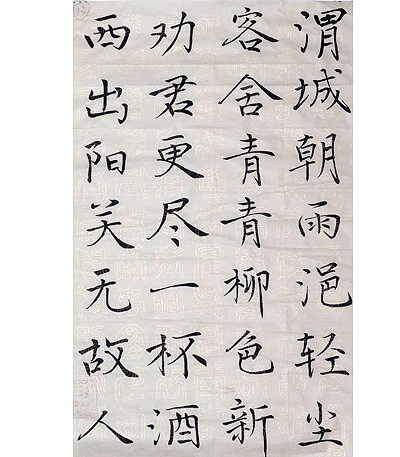 渭城朝雨浥轻尘
客舍青青柳色新
劝君更尽一杯酒
西出阳关无故人